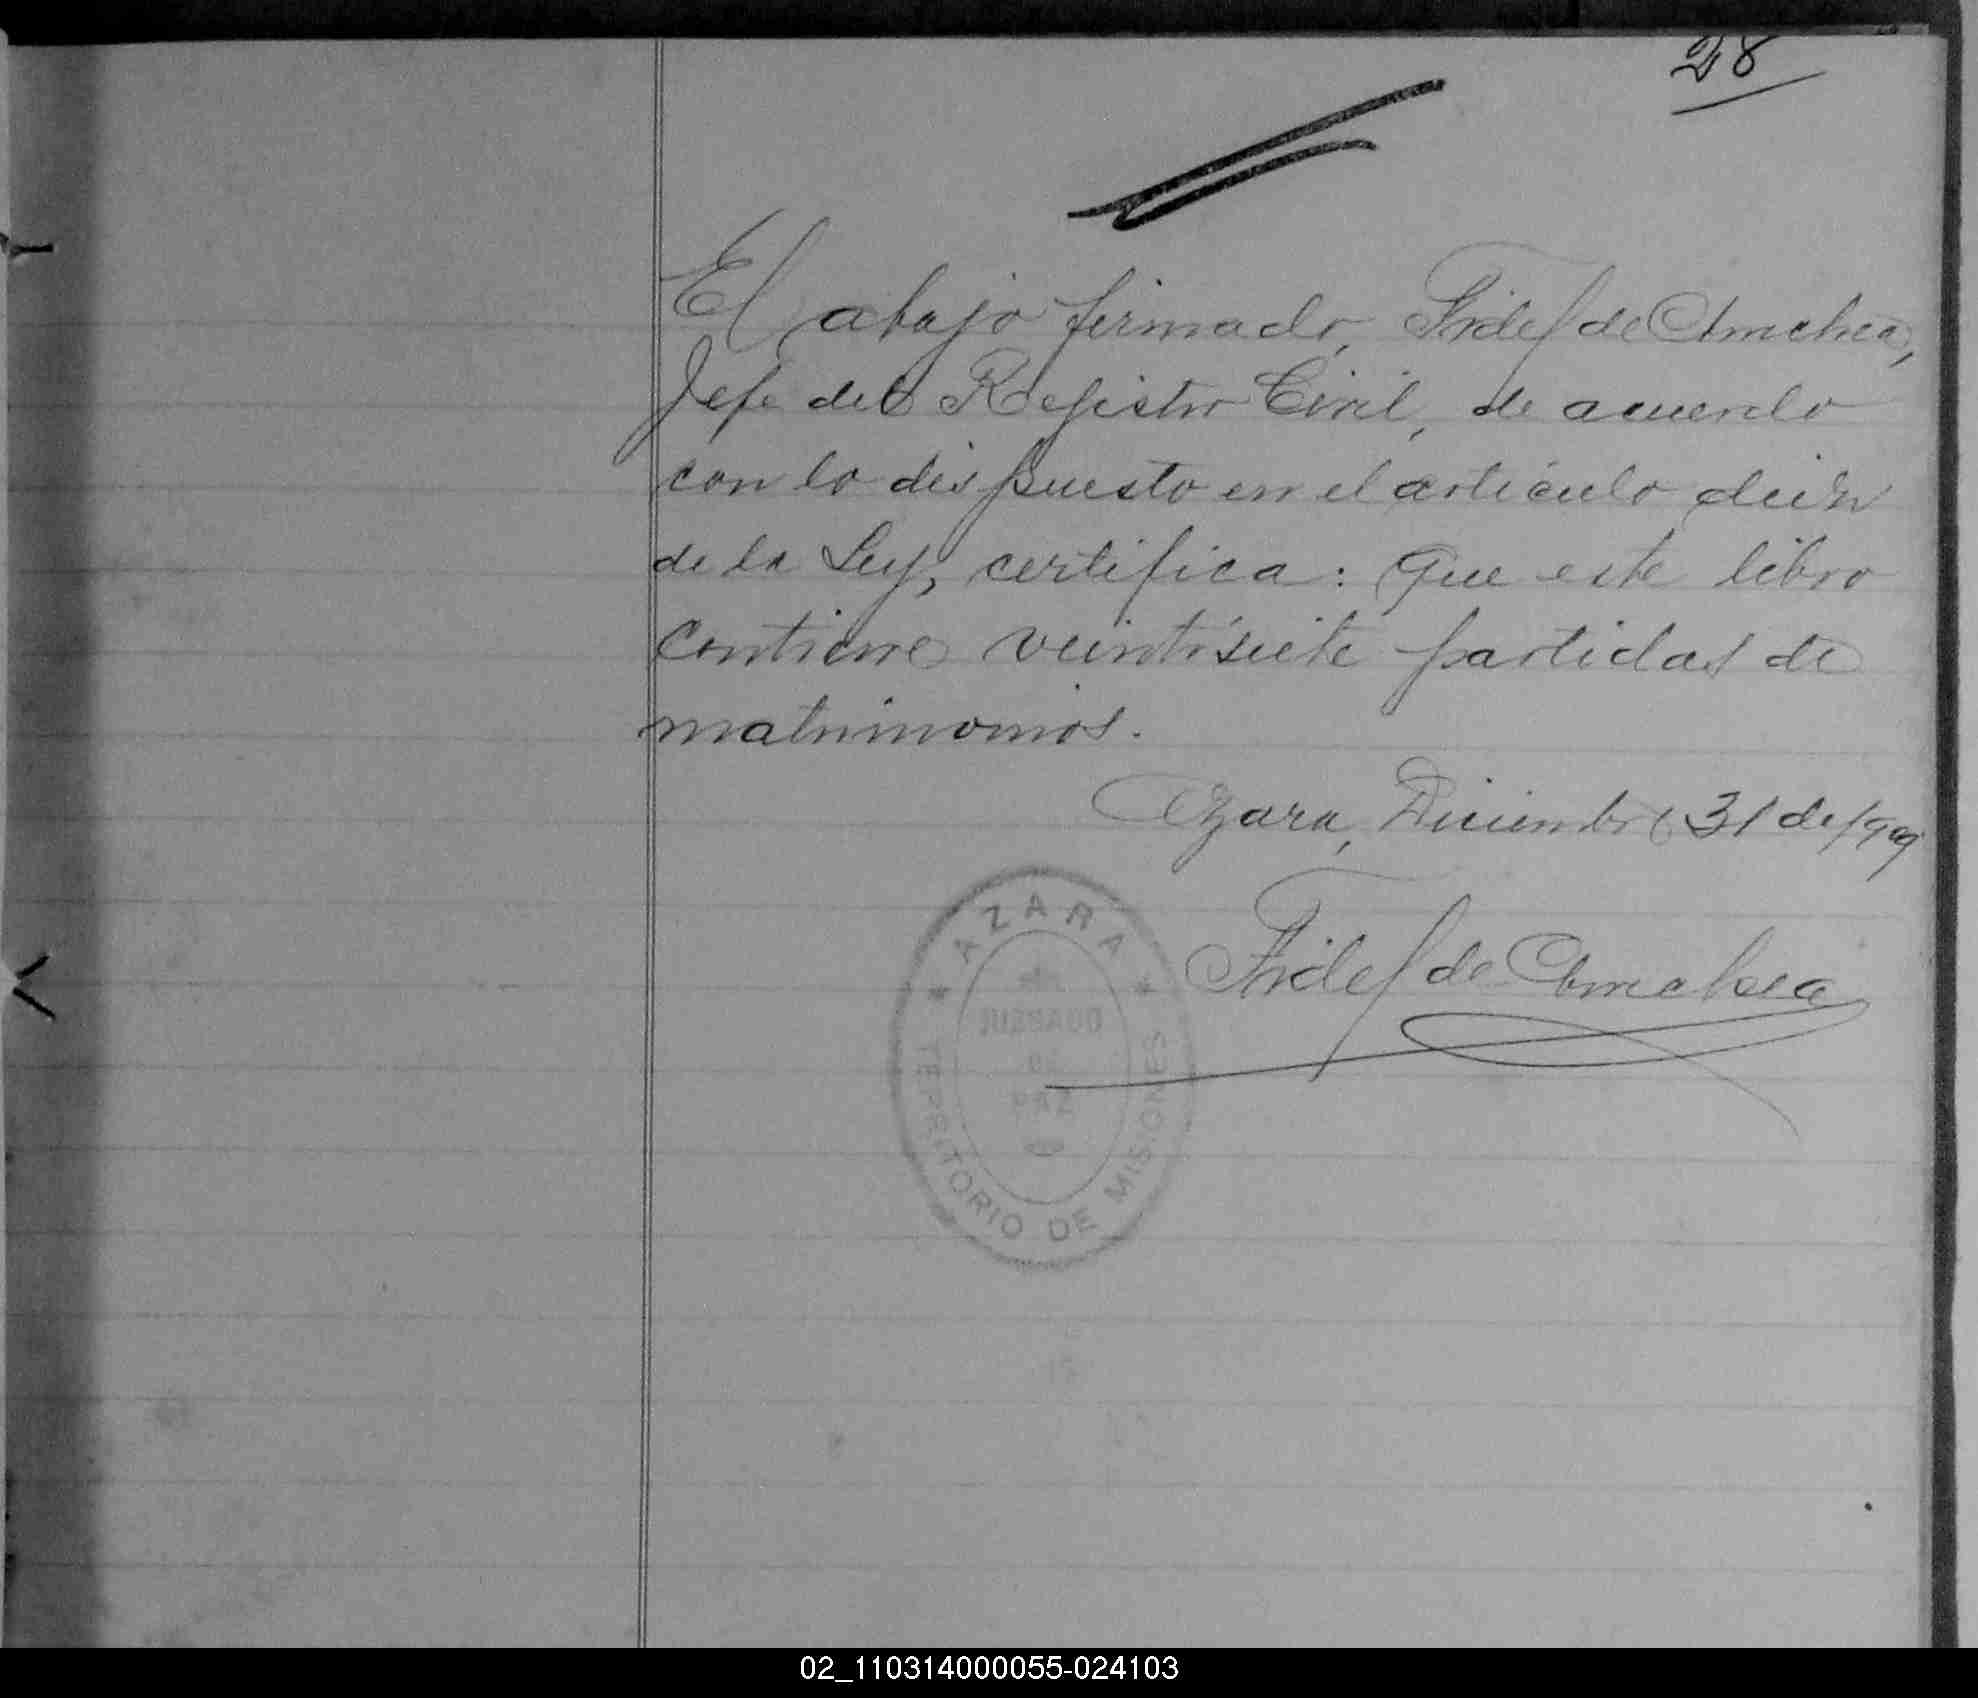 28
El abajo firmado, Fidel de Amechea,
Jefe del Registro Civil, de acuerdo
con lo dispuesto en el articulo diez
de la Ley, certifica: Que este libro
contiene veintisiete partidas de
matrimonios.
Azara, Diciembre 31 de 1909
Fidel de Amechea
AZARA
JUZGADO
DE
PAZ
TERRITORIO DE MISIONES
02_110314000055-024103